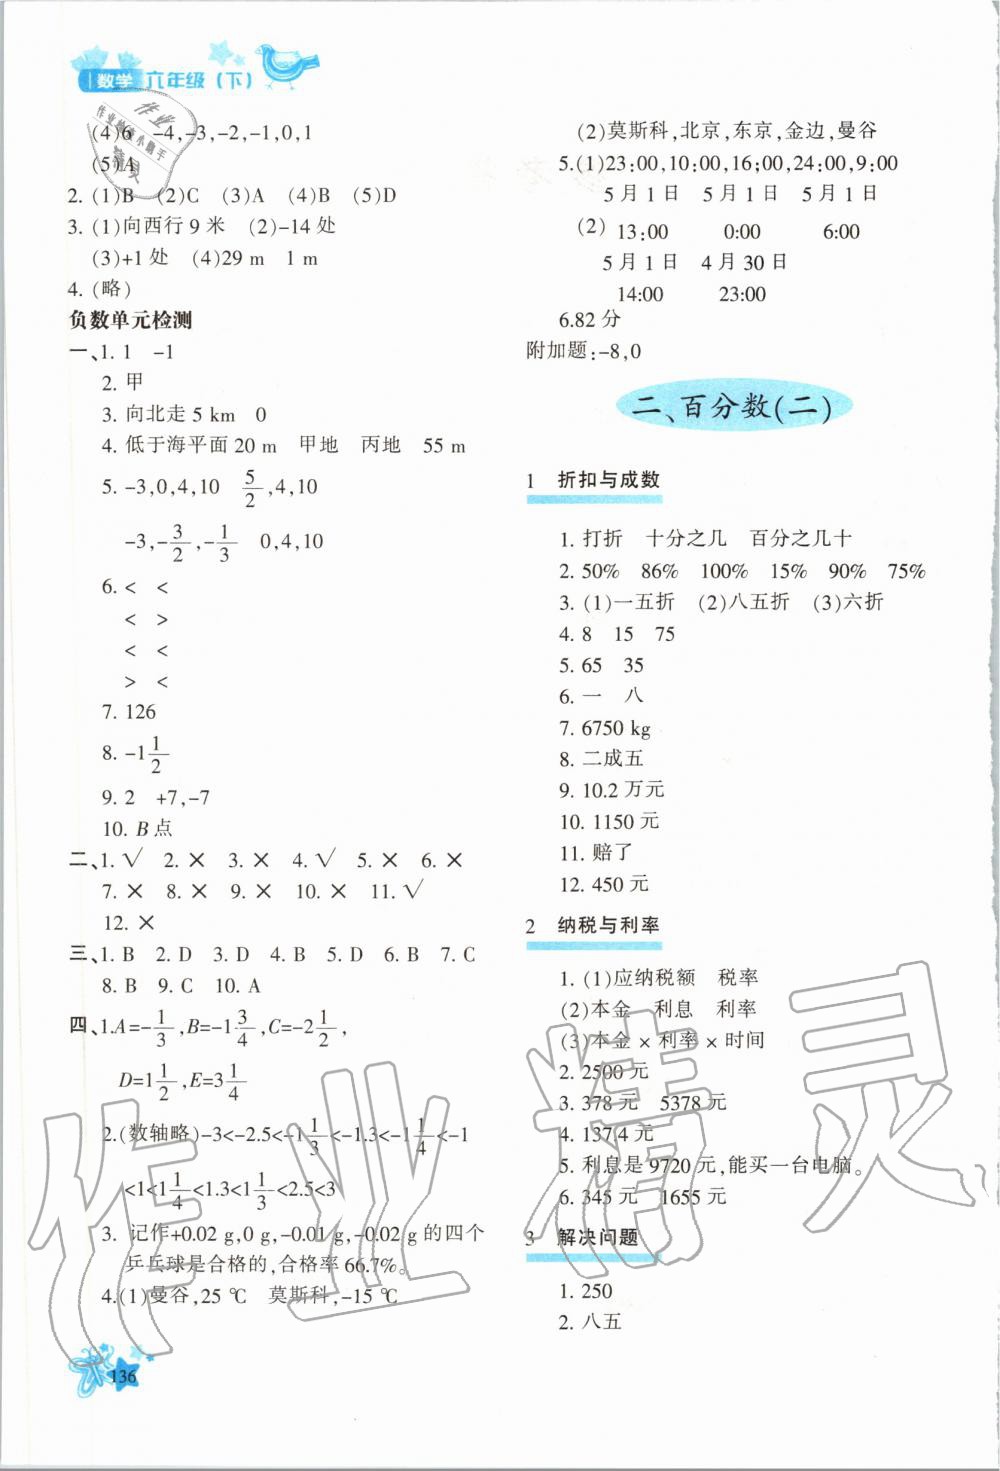 数学 六年级（下）
(4)6 -4,-3,-2,-1,0,1
(5)A
2. (1)B (2)C (3)A (4)B (5)D
3. (1)向西行 9 米 (2)-14 处
(3)+1 处 (4)29 m 1 m
4. (略)
负数单元检测
一、1. 1 -1
2. 甲
3. 向北走 5 km 0
4. 低于海平面 20 m 甲地 丙地 55 m
5. -3,0,4,10 5/2,4,10
-3,-3/2,-1/3 0,4,10
6. < <
< >
< <
> <
7. 126
8. -1 1/2
9. 2 +7,-7
10. B 点
二、1. √ 2. × 3. × 4. √ 5. × 6. ×
7. × 8. × 9. × 10. × 11. √
12. ×
三、1. B 2. D 3. D 4. B 5. D 6. B 7. C
8. B 9. C 10. A
四、1. A=-1/3,B=-1 3/4,C=-2 1/2,
D=1 1/2,E=3 1/4
2.(数轴略)-3<-2.5<-1 1/3<-1.3<-1 1/4<-1
<1<1 1/4<1.3<1 1/3<2.5<3
3. 记作+0.02 g,0 g,-0.01 g,-0.02 g 的四个
乒乓球是合格的,合格率 66.7%。
4.(1)曼谷,25 ℃ 莫斯科,-15 ℃
136
(2)莫斯科,北京,东京,金边,曼谷
5.(1)23:00,10:00,16:00,24:00,9:00
5 月 1 日 5 月 1 日 5 月 1 日
(2) 13:00 0:00 6:00
5 月 1 日 4 月 30 日
14:00 23:00
6.82 分
附加题:-8,0
二、百分数(二)
1 折扣与成数
1. 打折 十分之几 百分之几十
2. 50% 86% 100% 15% 90% 75%
3. (1)一五折 (2)八五折 (3)六折
4. 8 15 75
5. 65 35
6. 一 八
7. 6750 kg
8. 二成五
9. 10.2 万元
10. 1150 元
11. 赔了
12. 450 元
2 纳税与利率
1. (1)应纳税额 税率
(2)本金 利息 利率
(3)本金×利率×时间
2. 2500 元
3. 378 元 5378 元
4. 137.4 元
5. 利息是 9720 元,能买一台电脑。
6. 345 元 1655 元
3 解决问题
1. 250
2. 八五
作业精灵